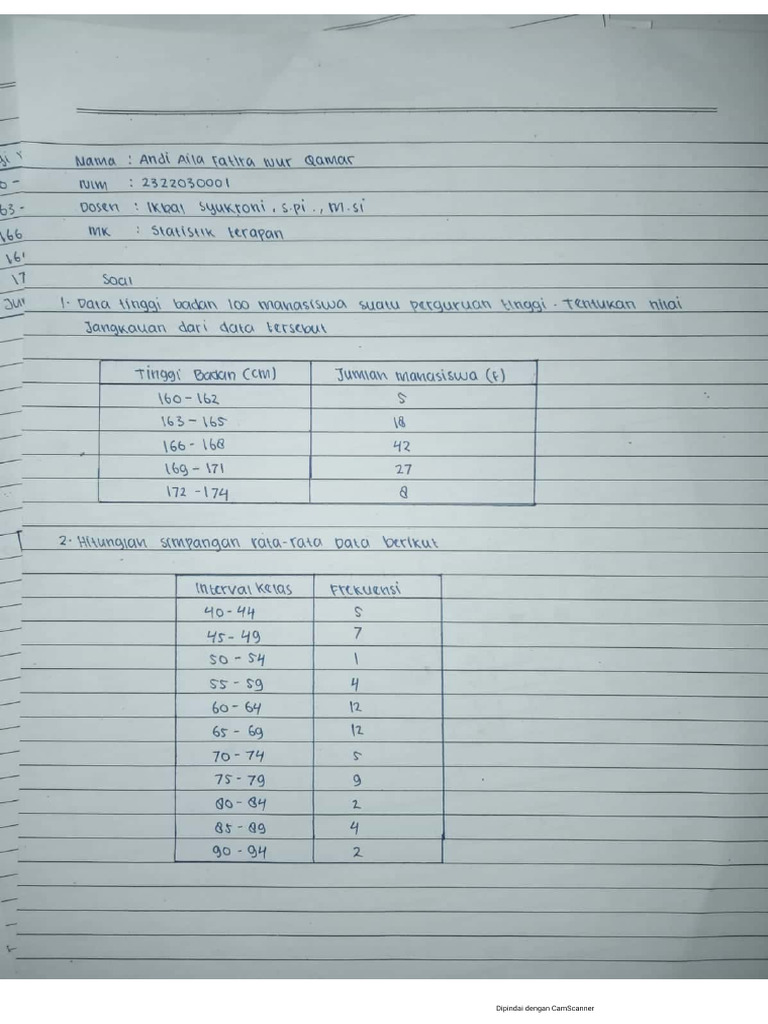 Nama : Andi Aila Fatira Nur Qamar
NIM : 2322030001
Dosen : Ikbal Syukroni, S.pi., M.si
MK : Statistik terapan
Soal
1. Data tinggi badan 100 mahasiswa suatu perguruan tinggi. Tentukan nilai
Jangkauan dari data tersebut
Tinggi Badan (CM) Jumlah mahasiswa (F)
160 - 162 5
163 - 165 18
166 - 168 42
169 - 171 27
172 - 174 8
2. Hitunglah simpangan rata-rata Data berikut
Interval Kelas Frekuensi
40 - 44 5
45 - 49 7
50 - 54 1
55 - 59 4
60 - 64 12
65 - 69 12
70 - 74 5
75 - 79 9
80 - 84 2
85 - 89 4
90 - 94 2
Dipindai dengan CamScanner